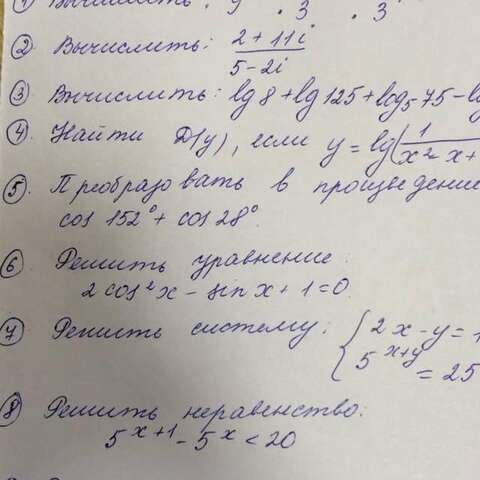 ① Вычислить: 9 · 3 · 3
② Вычислить: (2 + 11i)/(5 - 2i)
③ Вычислить: lg 8 + lg 125 + log₅ 75 -
④ Найти D(y), если y = lg(1/(x² - x +
⑤ Преобразовать в
cos 152° + cos 28°.
⑥ Решить уравнение:
2 cos² x - sin x + 1 = 0.
⑦ Решить систему: { 2x - y = 1
5^(x+y) = 25
⑧ Решить неравенство:
5^(x+1) - 5^x < 20